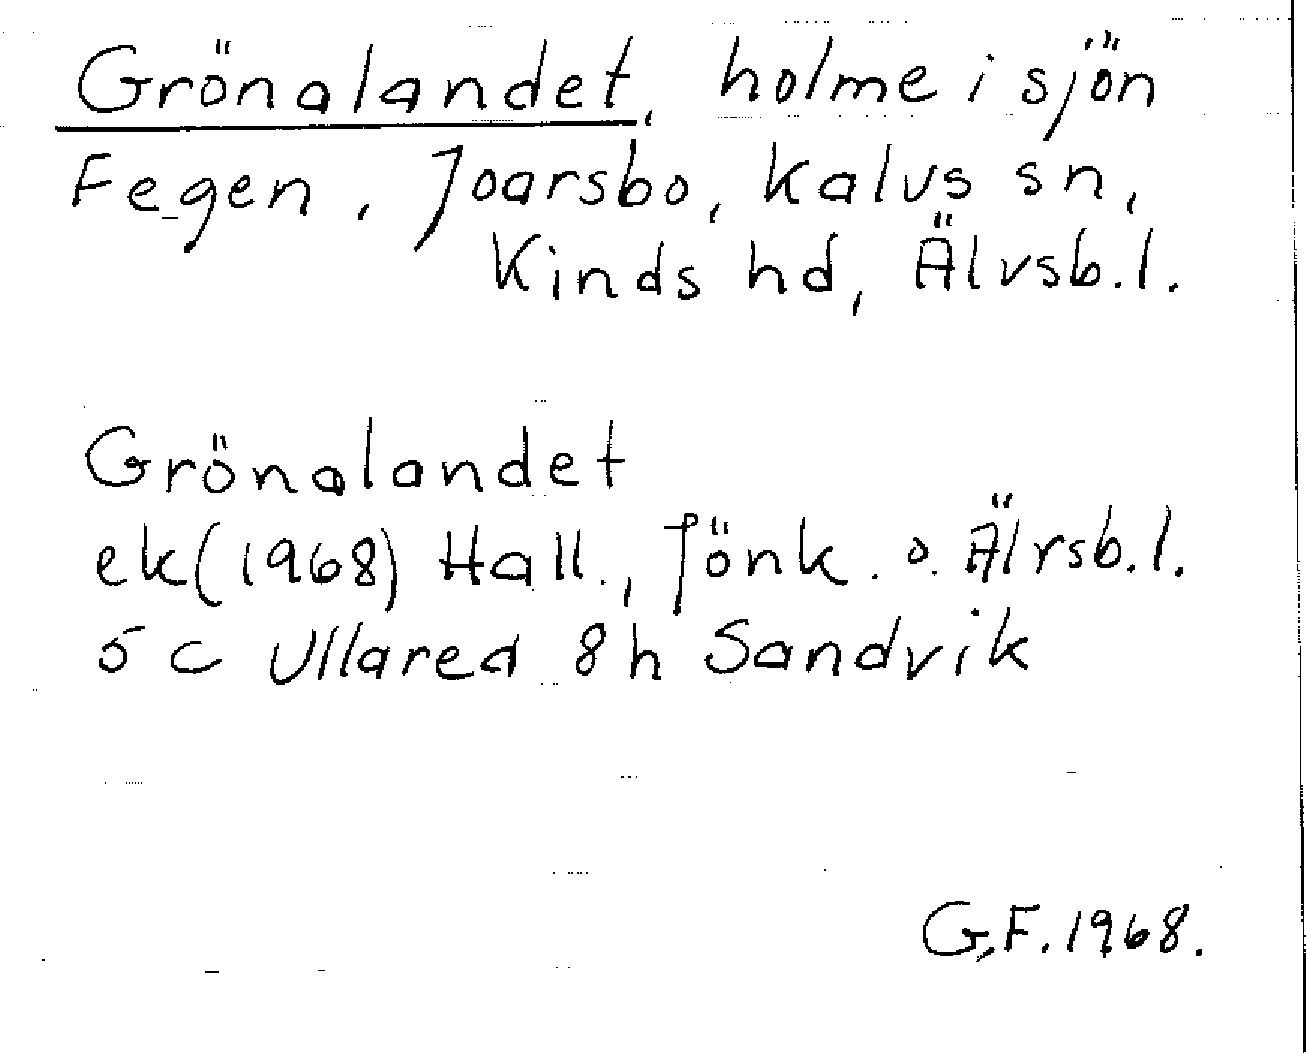 Grönalandet, holme i sjön
Fegen, Joarsbo, Kalvs sn,
Kinds hd, Älvsb.l.
Grönalandet
ek(1968) Hall., Jönk. o. Älvsb.l.
5 c Ullared 8h Sandvik
G.F. 1968.